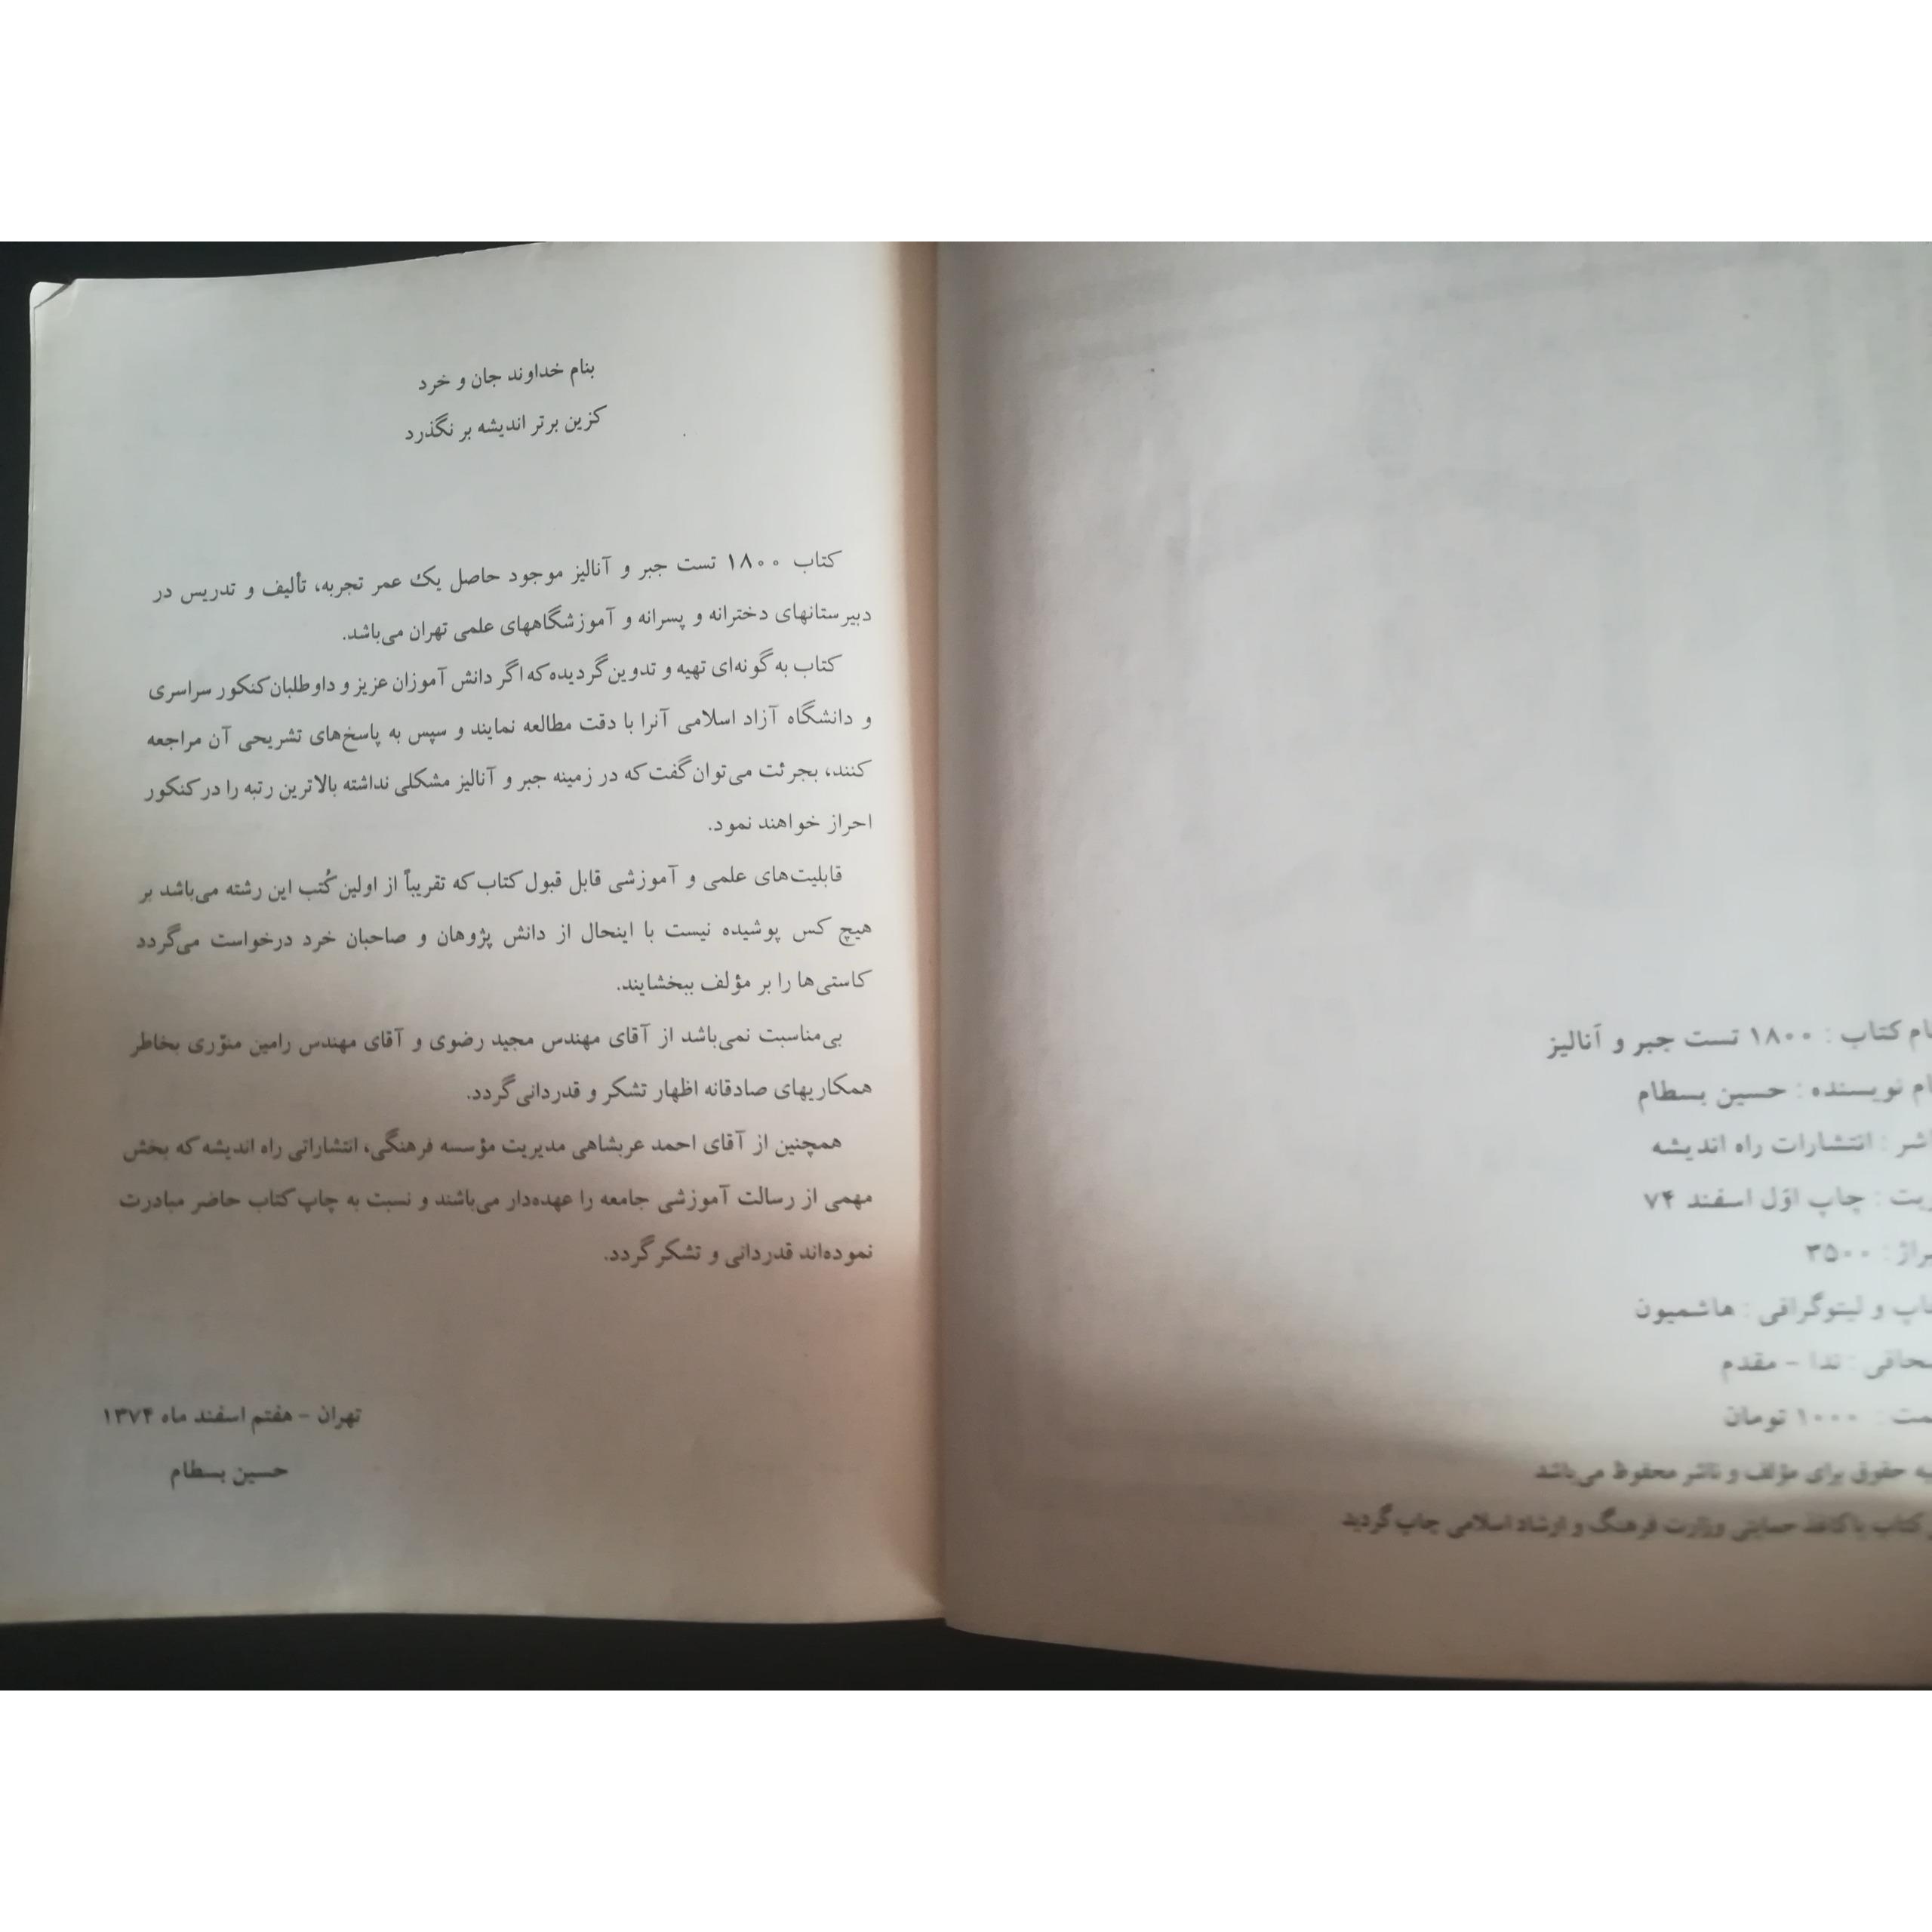 نام کتاب : ۱۸۰۰ تست جبر و آنالیز
نام نویسنده : حسین بسطام
ناشر : انتشارات راه اندیشه
چاپ اوّل اسفند ۷۴
تیراژ : ۳۵۰۰
چاپ و لیتوگرافی : هاشمیون
صحافی : ندا - مقدم
قیمت : ۱۰۰۰ تومان
حقوق برای مؤلف و ناشر محفوظ می‌باشد
کتاب با کاغذ حمایتی وزارت فرهنگ و ارشاد اسلامی چاپ گردید
بنام خداوند جان و خرد
کزین برتر اندیشه بر نگذرد
کتاب ۱۸۰۰ تست جبر و آنالیز موجود حاصل یک عمر تجربه، تألیف و تدریس در
دبیرستانهای دخترانه و پسرانه و آموزشگاههای علمی تهران می‌باشد.
کتاب به گونه‌ای تهیه و تدوین گردیده که اگر دانش آموزان عزیز و داوطلبان کنکور سراسری
و دانشگاه آزاد اسلامی آنرا با دقت مطالعه نمایند و سپس به پاسخ‌های تشریحی آن مراجعه
کنند، بجرئت می‌توان گفت که در زمینه جبر و آنالیز مشکلی نداشته بالاترین رتبه را در کنکور
احراز خواهند نمود.
قابلیت‌های علمی و آموزشی قابل قبول کتاب که تقریباً از اولین کُتب این رشته می‌باشد بر
هیچ کس پوشیده نیست با اینحال از دانش پژوهان و صاحبان خرد درخواست می‌گردد
کاستی‌ها را بر مؤلف ببخشایند.
بی‌مناسبت نمی‌باشد از آقای مهندس مجید رضوی و آقای مهندس رامین منوّری بخاطر
همکاریهای صادقانه اظهار تشکر و قدردانی گردد.
همچنین از آقای احمد عربشاهی مدیریت مؤسسه فرهنگی، انتشاراتی راه اندیشه که بخش
مهمی از رسالت آموزشی جامعه را عهده‌دار می‌باشند و نسبت به چاپ کتاب حاضر مبادرت
نموده‌اند قدردانی و تشکر گردد.
تهران - هفتم اسفند ماه ۱۳۷۴
حسین بسطام